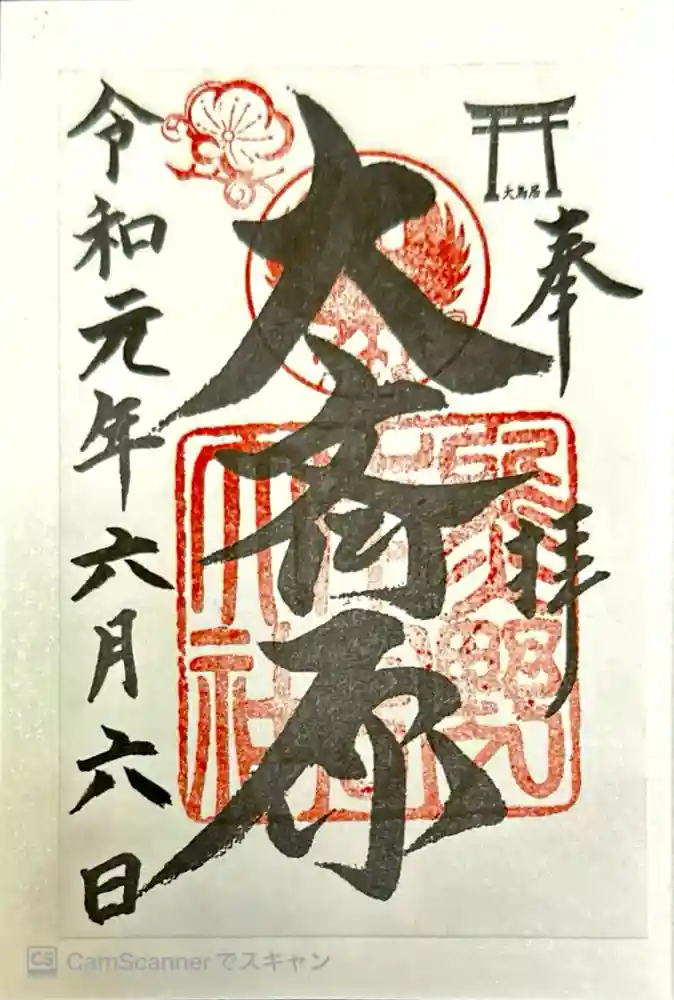 大鳥居
奉拝
大斎原
大社
令和元年六月六日
CS CamScannerでスキャン